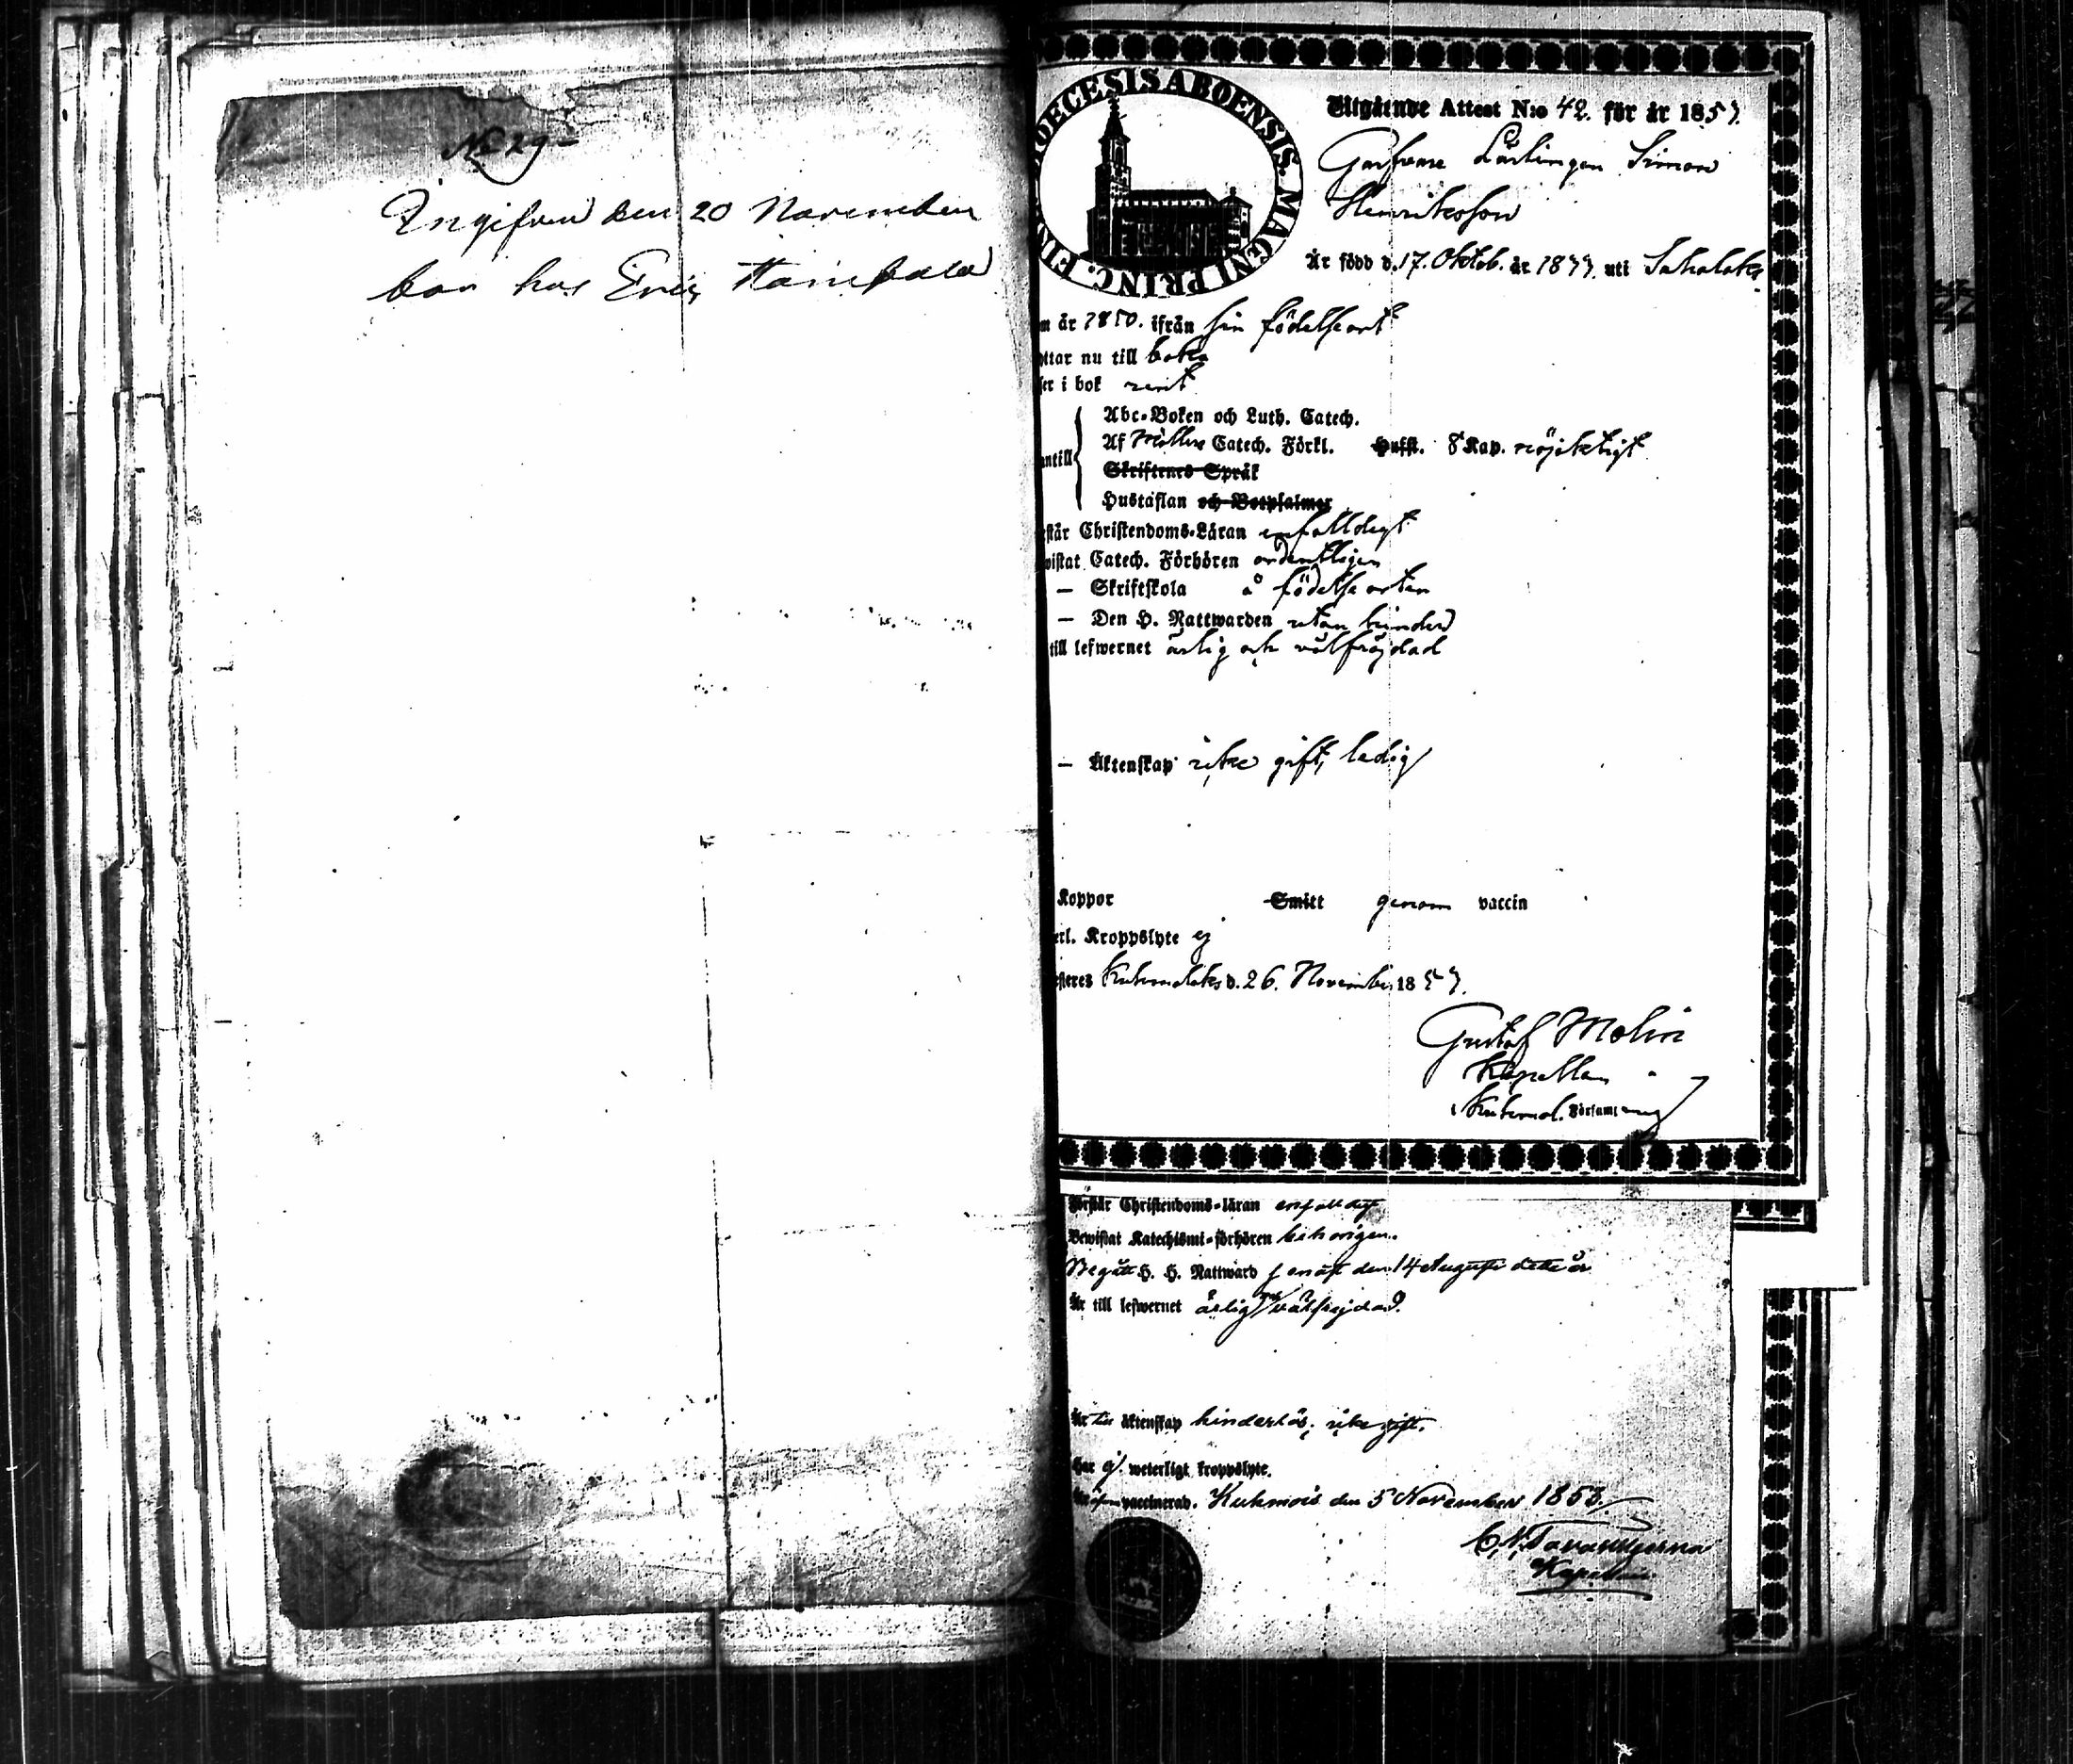 No 29
Ingifven den 20 November
bor hos Eric
DIOECESIS ABOENSIS. MAGNI PRINC. FIN
Utgående Attest N:o 42. för år 1857.
Garfvare Lärlingen Simon
Henriksson
Är född d. 17. Oktob. år 18 uti Sahalaks
m år 1850. ifrån sin födelseort
ttar nu till boka
ser i bok rent
Abc-Boken och Luth. Catech.
antill Af Möllers Catech. Förkl. Hufst. 8 Kap. nöjaktigt
Skriftenes Språk
Hustaflan och Botpsalmer
står Christendoms-Läran enfalldigt
vistat Catech. Förhören ordentligen
— Skriftskola å födelseorten
— Den H. Nattwarden utan hinder
till lefwernet ärlig och välfräjdad
— Äktenskap icke gift, ledig
Koppor Smitt genom vaccin
erl. Kroppslyte ej
steres Kuhmalaks d. 26. November 1857.
Gustaf Molin
Kapellan
i Kuhmal. Församling
Förstår Christendoms-läran enfaldigt
Bewistat Katechismi-förhören behörigen.
Begått H. H. Nattward senast den 14 Augusti detta år
Är till lefwernet ärlig och välfrejdad.
Är till äktenskap hinderlös, icke gift.
Har ej weterligt kroppslyte.
Är vaccinerad. Kuhmois den 5 November 1853.
C. N. Tavaststjerna
Kapellan